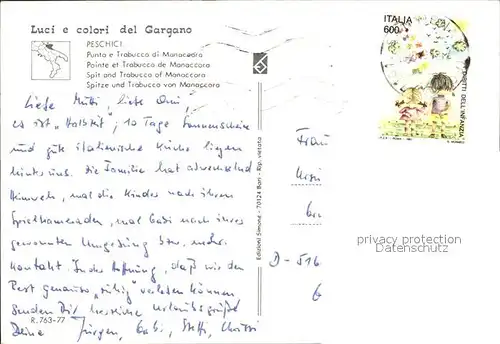 Luci e colori del Gargano
PESCHICI
Punta e Trabucco di Manaccora
Pointe et Trabucco de Manaccora
Spit and Trabucco of Manaccora
Spitze und Trabucco von Manaccora
ITALIA
600
DIRITTI DELL'INFANZIA
Liebe Mutti, liebe Omi,
es ist "Halbzeit", 10 Tage Sonnenschein
und gute italienische Küche liegen
hinter uns. Die Familie hat abwechselnd
Heimweh, mal die Kinder nach ihren
Spielkameraden, mal Gabi nach ihrer
gewohnten Umgebung bzw. mehr
Kontakt. In der Hoffnung, daß wir den
Rest genauso "ruhig" verleben können
senden Dir herzliche Urlaubsgrüße
Deine Jürgen, Gabi, Steffi,
R. 763-77
Edizioni Simone - 70124 Bari - Rip. vietata
Frau
D-516
privacy protection
Datenschutz